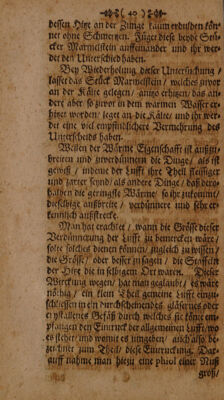 ( 40 )
dessen Hitze an der Zunge kaum erdulden könte
ohne Schmertzen. Füget diese beyde Stü-
cker Marmelstein auffeinander und ihr wer-
det den Unterschied haben.
Bey Wiederholung dieser Untersuchung /
lasset das Stück Marmelstein / welches zuvor
an der Kälte gelegen / anitzo erhitzen / das an-
dere aber so zuvor in dem warmen Wasser er-
hitzet worden / leget an die Kälte / und ihr wer-
det eine viel empfindlichere Vermehrung des
Unterscheids haben.
Weilen der Wärme Eigenschafft ist außzu-
breiten und zuverdünnern die Dinge / als ist
gewiß / indeme der Lufft ihre Theil flüssiger
und zarter seynd / als andere Dinge / daß der-
halben die geringste Wärme so ihr zukommt /
dieselbige außbreite / verdünnere und sehr er-
kenntlich außstrecke.
Man hat erachtet / wann die Grösse dieser
Verdünnerung der Lufft zu bemercken wäre /
solte solches dienen können / zugleich zu wissen /
die Grösse / oder besser zusagen / die Staffeln
der Hitze die in selbigem Ort waren. Dieser
Würckung wegen / hat man geglaubt / es wäre
nöthig / ein klein Theil gemeine Lufft einzu-
schliessen in ein durchscheinendes gläsernes oder
crystallines Gefäß durch welches sie könte em-
pfangen den Eintruck der allgemeinen Lufft / wo
es stehet / und womit es umgeben / auch also be-
zeichnet zum Theil / diese Eintruckung. Dar-
auff nahme man hierzu eine phiol einer Nuß
groß /